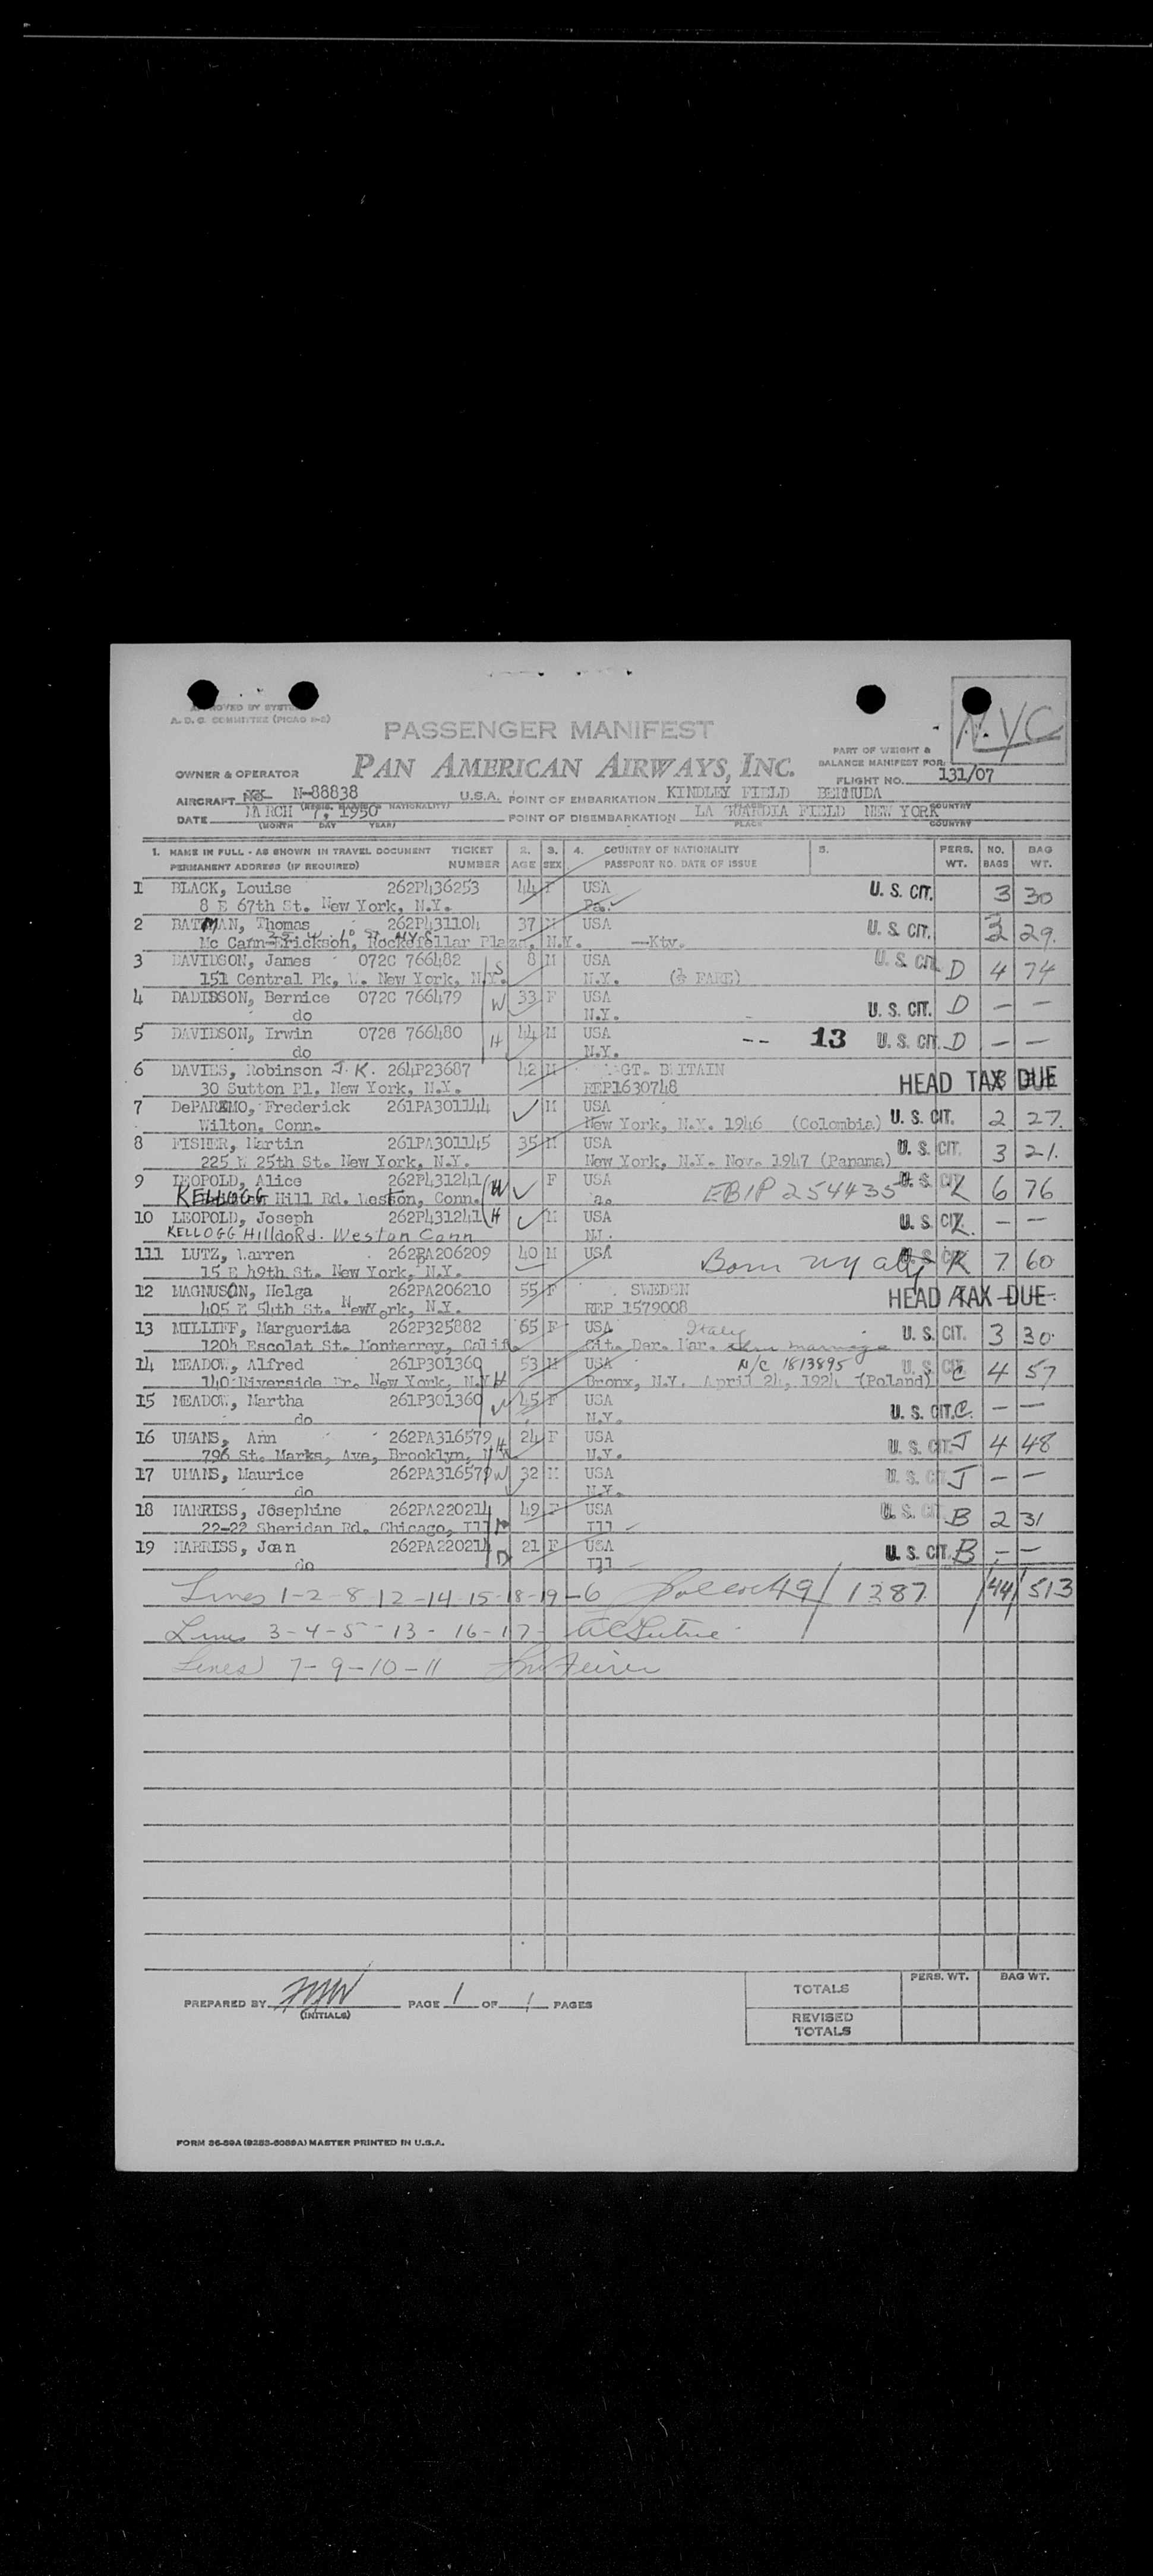 APPROVED BY SYSTEM
A. D. C. COMMITTEE
NYC
PASSENGER MANIFEST
PART OF WEIGHT &
BALANCE MANIFEST FOR:
PAN AMERICAN AIRWAYS, INC.
OWNER & OPERATOR
FLIGHT NO. 131/07
AIRCRAFT N-88838 U.S.A. POINT OF EMBARKATION KINDLEY FIELD BERMUDA
DATE MARCH 7, 1950 POINT OF DISEMBARKATION LA GUARDIA FIELD NEW YORK
(MONTH DAY YEAR) PLACE COUNTRY
1. NAME IN FULL - AS SHOWN IN TRAVEL DOCUMENT TICKET 2. 3. 4. COUNTRY OF NATIONALITY 5. PERS. NO. BAG
PERMANENT ADDRESS (IF REQUIRED) NUMBER AGE SEX PASSPORT NO. DATE OF ISSUE WT. BAGS WT.
1 BLACK, Louise 262P436253 44 F USA U. S. CIT. 3 30
8 E 67th St. New York, N.Y. Pa.
2 BATMAN, Thomas 262P431104 37 M USA U. S. CIT. 3 29
Mc Cann-Erickson, Rockefellar Plaza, N.Y. —Kty.
3 DAVIDSON, James 072C 766482 S 8 M USA U. S. CIT. D 4 74
151 Central Pk, W. New York, N.Y. N.Y. (½ FARE)
4 DADIDSON, Bernice 072C 766479 W 33 F USA U. S. CIT. D — —
do N.Y.
5 DAVIDSON, Irwin 072C 766480 H 44 M USA -- 13 U. S. CIT. D — —
do N.Y.
6 DAVIES, Robinson J. K. 264P23687 42 M GT. BRITAIN
30 Sutton Pl. New York, N.Y. REP1630748 HEAD TAX DUE
7 DePARAMO, Frederick 261PA301144 M USA
Wilton, Conn. New York, N.Y. 1946 (Colombia) U. S. CIT. 2 27
8 FISHER, Martin 261PA301145 35 M USA U. S. CIT. 3 21
225 W 25th St. New York, N.Y. New York, N.Y. Nov. 1947 (Panama)
9 LEOPOLD, Alice 262P431241 W F USA U. S. CIT. K 6 76
KELLOGG Hill Rd. Weston, Conn. EBIP 254435
10 LEOPOLD, Joseph 262P431241 H M USA U. S. CIT. K — —
KELLOGG Hill Rd. Weston Conn NJ.
111 LUTZ, Warren 262PA206209 40 M USA Born ny city U. S. CIT. K 7 60
15 E 49th St. New York, N.Y.
12 MAGNUSON, Helga 262PA206210 55 F SWEDEN
405 E 54th St. New York, N.Y. REP 1579008 HEAD TAX DUE
13 MILLIFF, Marguerita 262P325882 65 F USA Italy U. S. CIT. 3 30
120h Escolat St. Monterrey, Calif. Cit. Der. Mar. marriage
14 MEADOW, Alfred 261P301369 53 M USA N/C 1813895 U. S. CIT. C 4 57
140 Riverside Dr. New York, N.Y. H Bronx, N.Y. April 24, 1924 (Poland)
15 MEADOW, Martha 261P301360 W 45 F USA U. S. CIT. C — —
do N.Y.
16 UMANS, Ann 262PA316579 24 F USA U. S. CIT. J 4 48
796 St. Marks, Ave, Brooklyn, N.Y.
17 UMANS, Maurice 262PA316579 W 32 M USA U. S. CIT. J — —
do N.Y.
18 HARRISS, Josephine 262PA220214 49 F USA U. S. CIT. B 2 31
22-22 Sheridan Rd. Chicago, Ill M Ill
19 HARRISS, Joan 262PA220214 D 21 F USA U. S. CIT. B — —
do Ill
Lines 1-2-8 12-14-15-18-19-6 49/1387 /44/513
Lines 3-4-5-13-16-17-
Lines 7-9-10-11
PERS. WT. BAG WT.
TOTALS
PREPARED BY (INITIALS) PAGE 1 OF 1 PAGES
REVISED
TOTALS
FORM 36-89A (9283-6089A) MASTER PRINTED IN U.S.A.